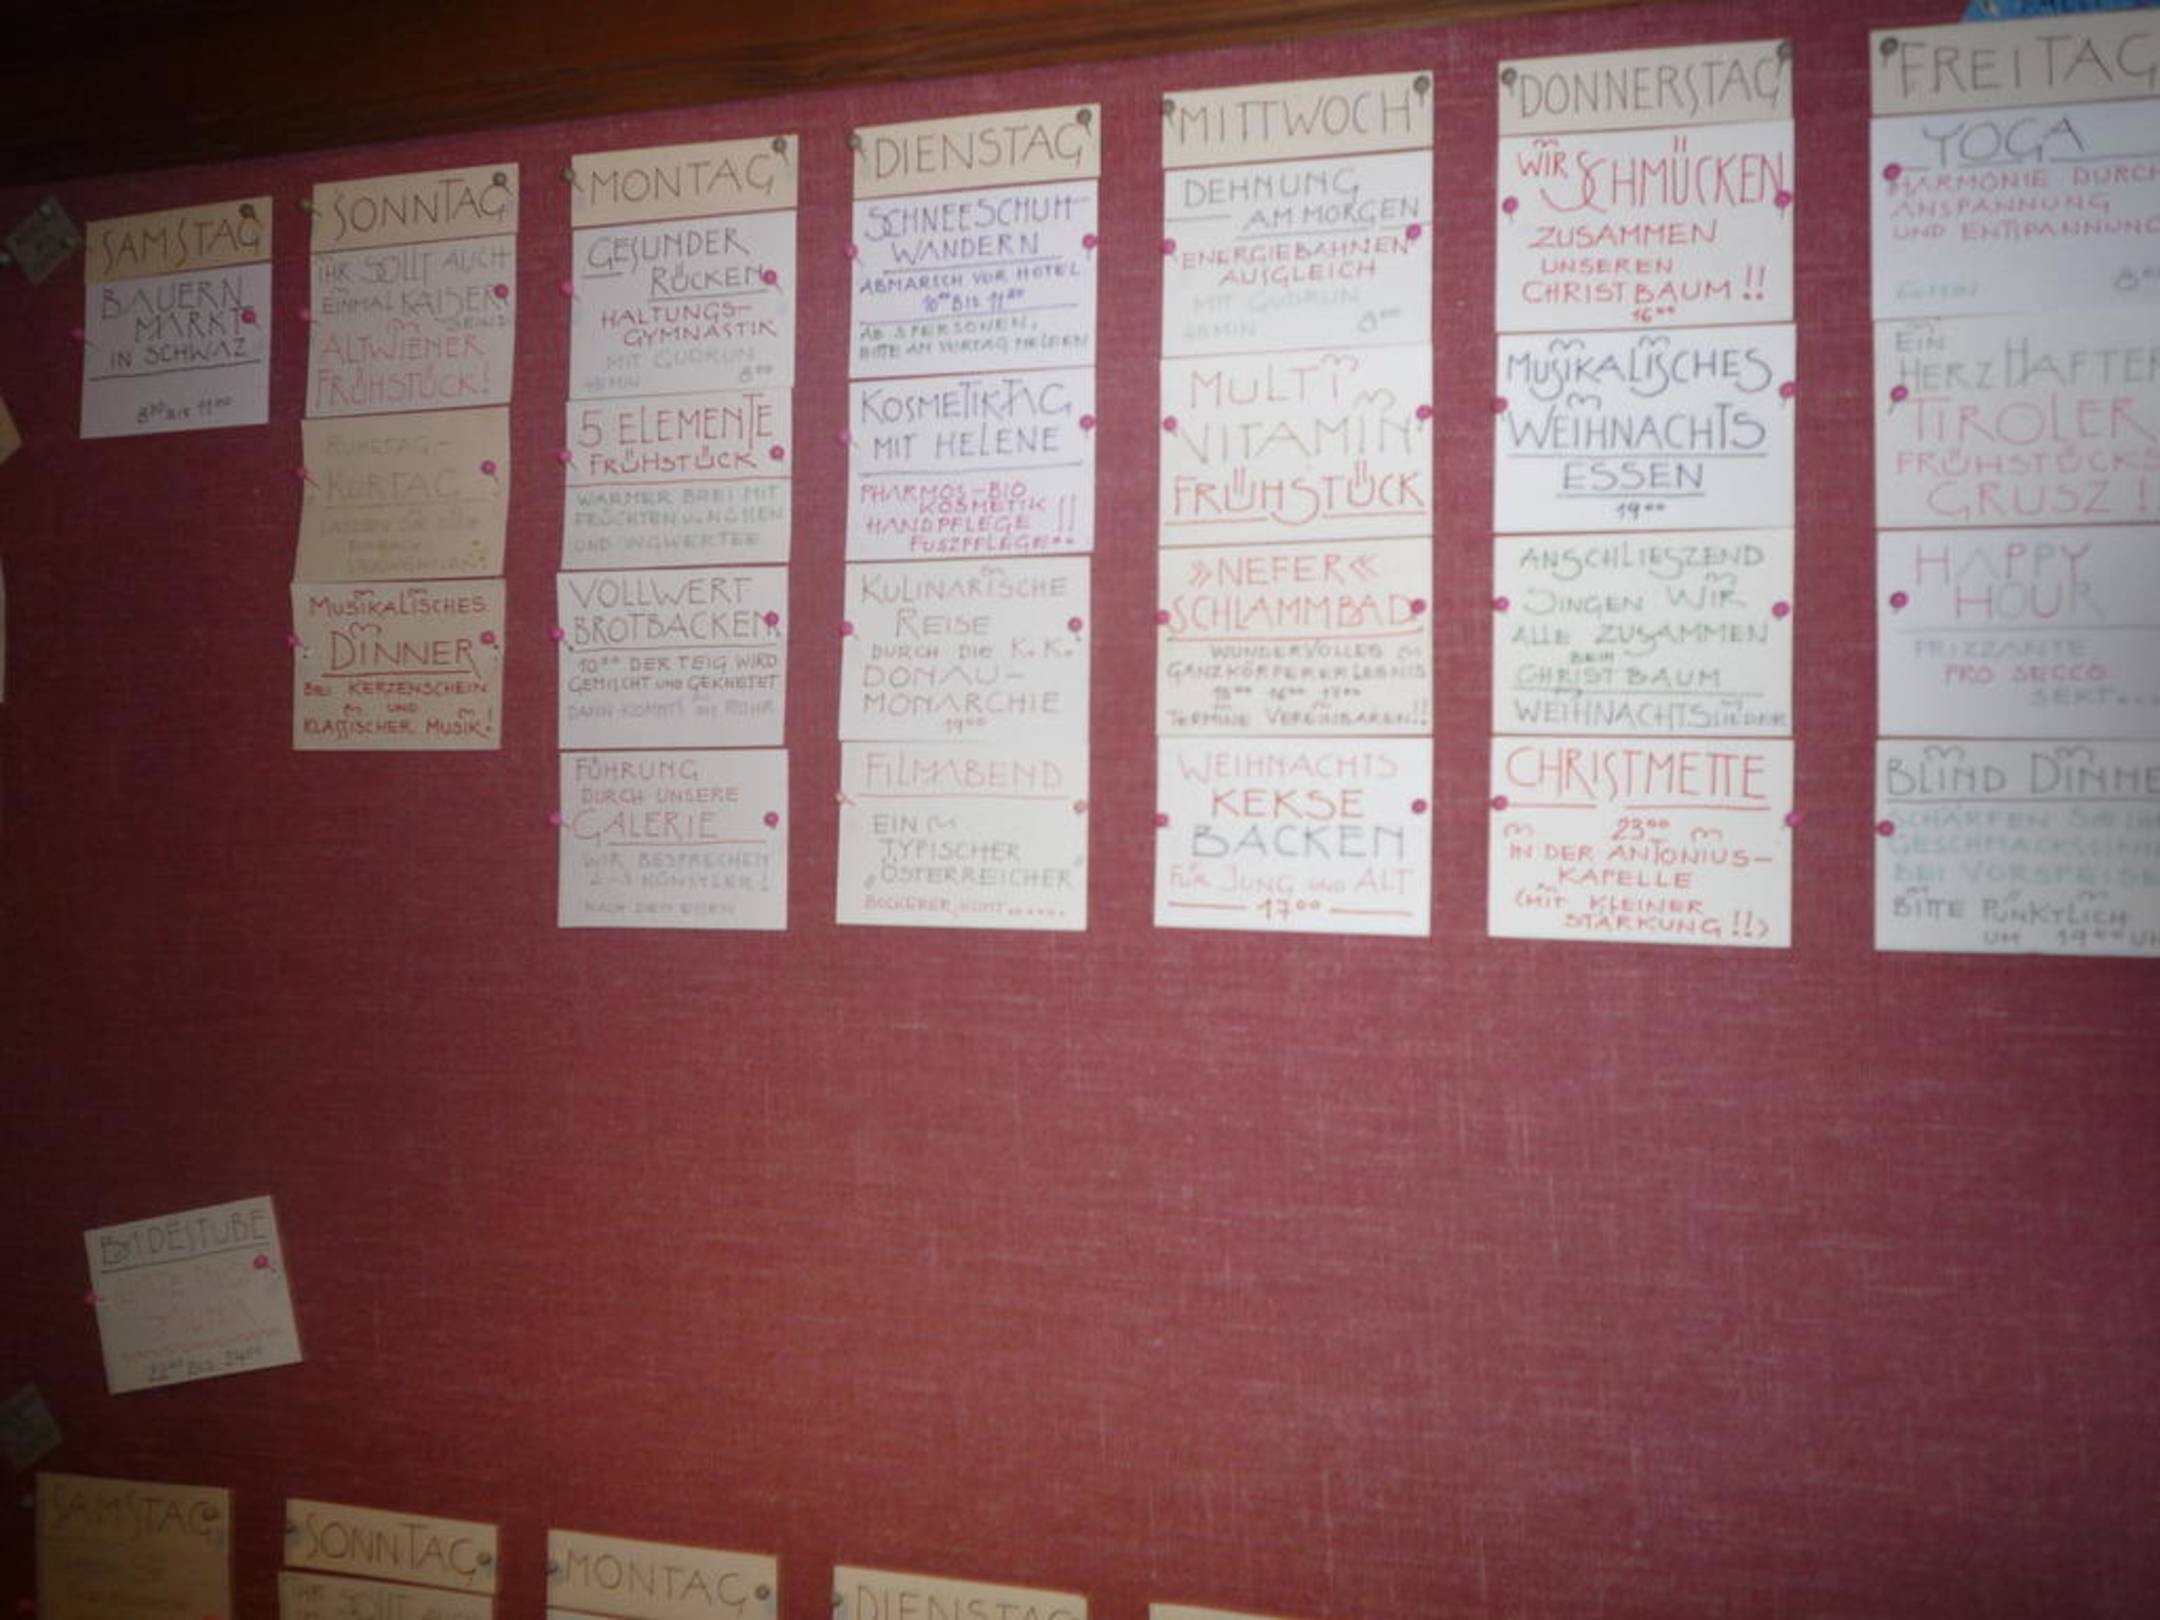 SAMSTAG
BAUERN
MARKT
IN SCHWAZ
BIS 11°°
SONNTAG
IHR SOLLT AUCH
EINMAL KAISER
SEIN!
ALTWIENER
FRÜHSTÜCK!
RUHETAG-
KURTAG
MUSIKALISCHES
DINNER
BEI KERZENSCHEIN
UND
KLASSISCHER MUSIK!
MONTAG
GESUNDER
RÜCKEN
HALTUNGS-
GYMNASTIK
MIT GUDRUN
45 MIN 8°°
5 ELEMENTE
FRÜHSTÜCK
WARMER BREI MIT
FRÜCHTEN U. NÜSSEN
UND INGWERTEE
VOLLWERT
BROTBACKEN
10°° DER TEIG WIRD
GEMISCHT UND GEKNETET
DANN KOMMTS INS ROHR
FÜHRUNG
DURCH UNSERE
GALERIE
WIR BESPRECHEN
2-3 KÜNSTLER!
NACH DEM ESSEN
DIENSTAG
SCHNEESCHUH-
WANDERN
ABMARSCH VOR HOTEL
10°° BIS 11°°
AB 3 PERSONEN,
BITTE AM VORTAG MELDEN
KOSMETIKTAG
MIT HELENE
PHARMOS-BIO
KOSMETIK
HANDPFLEGE !!
FUSZPFLEGE..
KULINARISCHE
REISE
DURCH DIE K.K.
DONAU-
MONARCHIE
19°°
FILMABEND
EIN
TYPISCHER
ÖSTERREICHER
BOCKERER,
MITTWOCH
DEHNUNG
AM MORGEN
ENERGIEBAHNEN
AUSGLEICH
MIT GUDRUN
45 MIN 8°°
MULTI
VITAMIN
FRÜHSTÜCK
»NEFER«
SCHLAMMBAD
WUNDERVOLLES
GANZKÖRPERERLEBNIS
15°° 16°° 17°°
TERMINE VEREINBAREN!!
WEIHNACHTS
KEKSE
BACKEN
FÜR JUNG UND ALT
17°°
DONNERSTAG
WIR SCHMÜCKEN
ZUSAMMEN
UNSEREN
CHRISTBAUM!!
16°°
MUSIKALISCHES
WEIHNACHTS
ESSEN
19°°
ANSCHLIESZEND
SINGEN WIR
ALLE ZUSAMMEN
BEIM
CHRISTBAUM
WEIHNACHTSLIEDER
CHRISTMETTE
23°°
IN DER ANTONIUS-
KAPELLE
(MIT KLEINER
STÄRKUNG!!)
FREITAG
YOGA
HARMONIE DURCH
ANSPANNUNG
UND ENTSPANNUNG
8°°
EIN
HERZHAFTER
TIROLER
FRÜHSTÜCKS
GRUSZ!
HAPPY
HOUR
FRIZZANTE
PRO SECCO
SEKT....
BLIND DINNE
SCHÄRFEN SIE IHRE
GESCHMACKSSINNE
BEI VORSPEISE
BITTE PÜNKTLICH
UM 19°° UH
BADESTUBE
22°° BIS 24°°
SAMSTAG
SONNTAG
IHR SOLLT AUCH
MONTAG
DIENSTAG